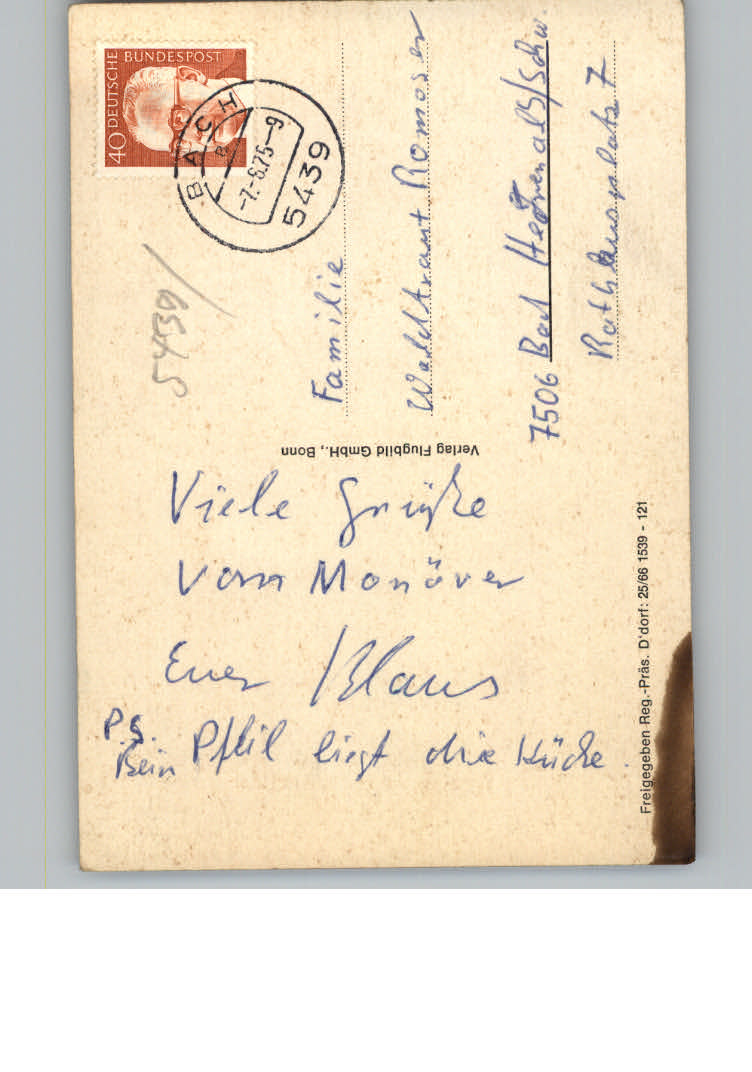 DEUTSCHE BUNDESPOST
40
BACH
5439
-7.-6.75--9
5439
Familie
Waldtraut Romoser
7506 Bad Herrenalb/Schw.
Rathausplatz 7
Verlag Flugbild GmbH., Bonn
Viele Grüße
vom Manöver
Euer Klaus
P.S.
Beim Pfeil liegt die Küche.
Freigegeben Reg.-Präs. D'dorf: 25/66 1539 - 121